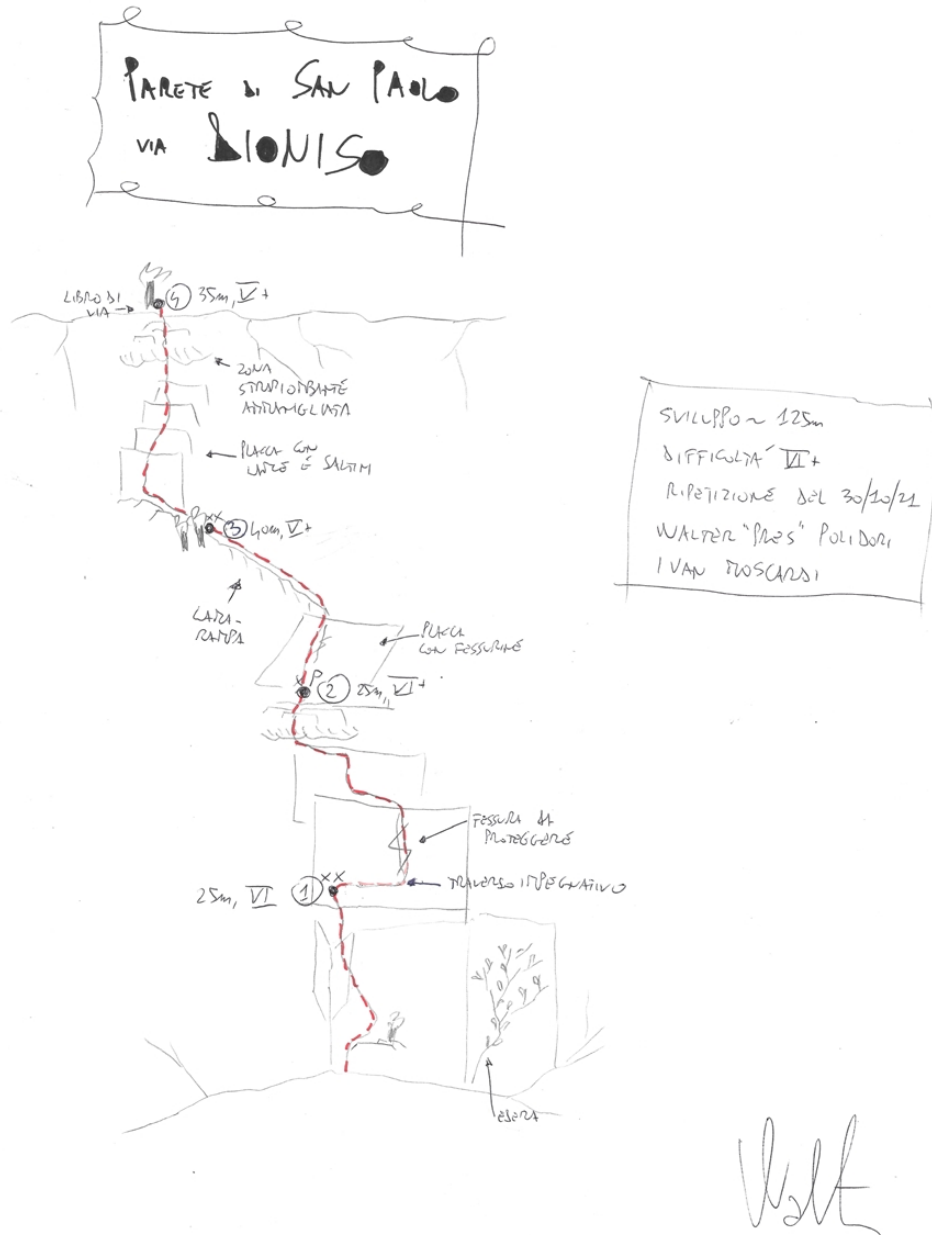 PARETE DI SAN PAOLO
VIA DIONISO
LIBRO DI
VIA
4 35m, V+
ZONA
STRAPIOMBANTE
AMMANIGLIATA
PLACCA CON
LAME E SALTINI
3 40m, V+
LAMA-
RAMPA
PLACCA
CON FESSURINE
P
2 25m, VI+
FESSURA DA
PROTEGGERE
XX
TRAVERSO IMPEGNATIVO
25m, VI 1
EDERA
SVILUPPO ~ 125m
DIFFICOLTA' VI+
RIPETIZIONE DEL 30/10/21
WALTER "PRES" POLIDORI
IVAN MOSCARDI
Walt